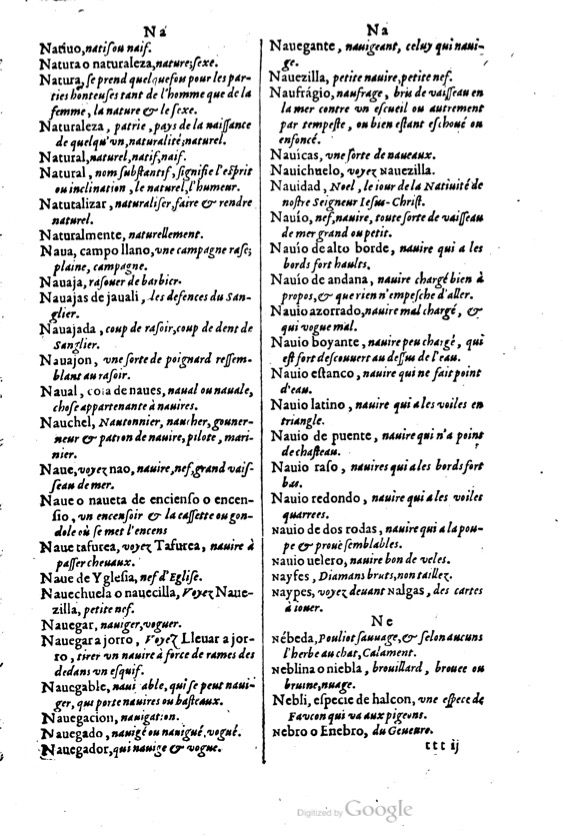 Na
Natiuo, natif ou naif.
Natura o naturaleza, nature, sexe.
Natura, se prend quelquefou pour les par-
ties honteuses tant de l'homme que de la
femme, la nature & le sexe.
Naturaleza, patrie, pays de la naissance
de quelqu'vn, naturalité, naturel.
Natural, naturel, natif, naif.
Natural, nom substantif, signifie l'esprit
ou inclination, le naturel, l'humeur.
Natutalizar, naturaliser, faire & rendre
naturel.
Naturalmente, naturellement.
Naua, campo llano, vne campagne rase,
plaine, campagne.
Nauaja, rasouer de barbier.
Nauajas de jauali, les defences du San-
glier.
Nauajada, coup de rasoir, coup de dent de
Sanglier.
Nauajon, vne sorte de poignard ressem-
blant au rasoir.
Naual, cosa de naues, naual ou nauale,
chose appartenante à nauires.
Nauchel, Nautonnier, naucher, gouuer-
neur & patron de nauire, pilote, mari-
nier.
Naue, voyez nao, nauire, nef, grand vais-
seau de mer.
Naue o naueta de encienso o encen-
sio, vn encensoir & la cassette ou gon-
dole où se met l'encens
Naue tafurea, voyez Tafurea, nauire à
passer cheuaux.
Naue de Yglesia, nef d'Eglise.
Nauechuela o nauecilla, Voyez Naue-
zilla, petite nef.
Nauegar, nauiger, voguer.
Nauegar a jorro, Voyez Lleuar a jor-
ro, tirer vn nauire à force de rames des
dedans vn esquif.
Nauegable, naui able, qui se peut naui-
ger, qui porte nauires ou basteaux.
Nauegacion, nauigation.
Nauegado, nauigé ou nauigué, vogué.
Nauegador, qui nauige & vogue.
Na
Nauegante, nauigeant, celuy qui naui-
ge.
Nauezilla, petite nauire, petite nef.
Naufrágio, naufrage, bris de vaisseau en
la mer contre vn escueil ou autrement
par tempeste, ou bien estant eschoué ou
enfoncé.
Nauicas, vne sorte de naueaux.
Nauichuelo, voyez Nauezilla.
Nauidad, Noel, le iour de la Natiuité de
nostre Seigneur Iesus-Christ.
Nauío, nef, nauire, toute sorte de vaisseau
de mer grand ou petit.
Nauío de alto borde, nauire qui a les
bords fort haults.
Nauío de andana, nauire chargé bien à
propos, & que rien n'empesche d'aller.
Nauio azorrado, nauire mal chargé, &
qui vogue mal.
Nauio boyante, nauire peu chargé, qui
est fort descouuert au dessus de l'eau.
Nauio estanco, nauire qui ne fait point
d'eau.
Nauio latino, nauire qui a les voiles en
triangle.
Nauio de puente, nauire qui n'a point
de chasteau.
Nauio raso, nauires qui a les bords fort
bas.
Nauio redondo, nauire qui a les voiles
quarrees.
Nauio de dos rodas, nauire qui a la pou-
pe & prouë semblables.
Nauio uelero, nauire bon de veles.
Nayfes, Diamans bruts, non taillez.
Naypes, voyez deuant Nalgas, des cartes
à iouer.
Ne
Nébeda, Pouliot sauuage, & selon aucuns
l'herbe au chat, Calament.
Neblina o niebla, brouillard, brouee ou
bruine, nuage.
Nebli, especie de halcon, vne espece de
Faucon qui va aux pigeons.
Nebro o Enebro, du Geneure.
ttt ij
Digitized by Google